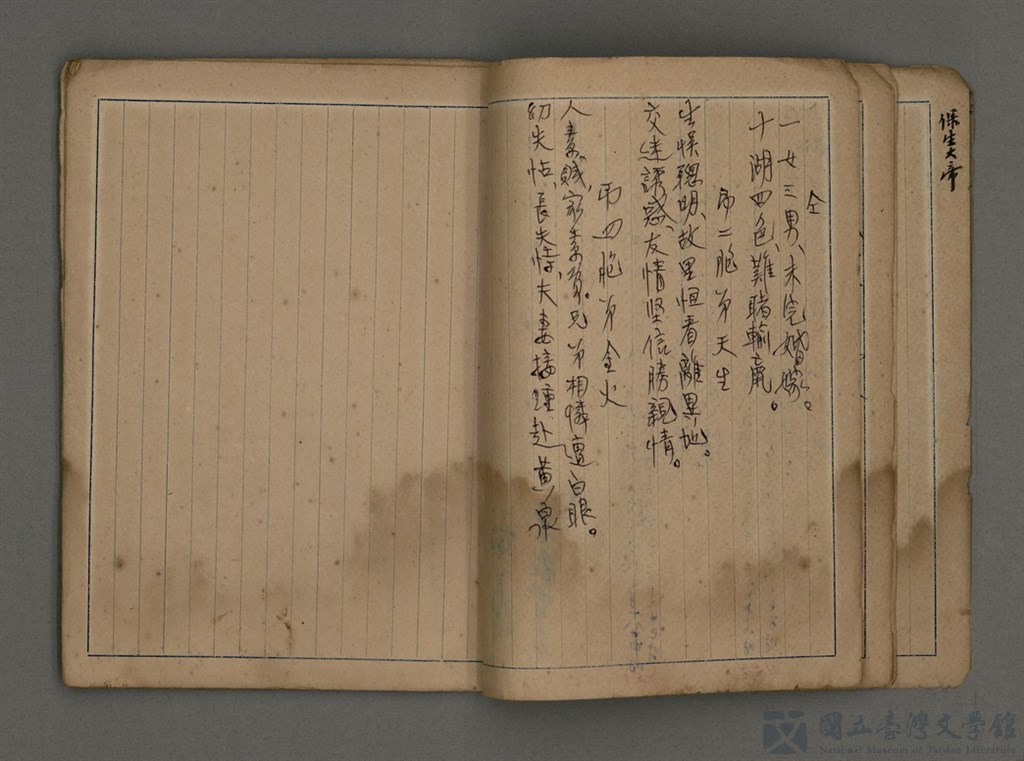 保生大帝
仝
一女三男、未完婚嫁。
十湖四色、難賭輸贏。
弔二胞弟天生
生悞聰明、故里恒看離異地。
交迷誘惑、友情坚信勝親情。
弔四胞弟金火
人素贱、家素貧。兄弟相憐遭白眼。
幼失怙、長失恃、夫妻接踵赴黄泉
國立臺灣文學館
National Museum of Taiwan Literature